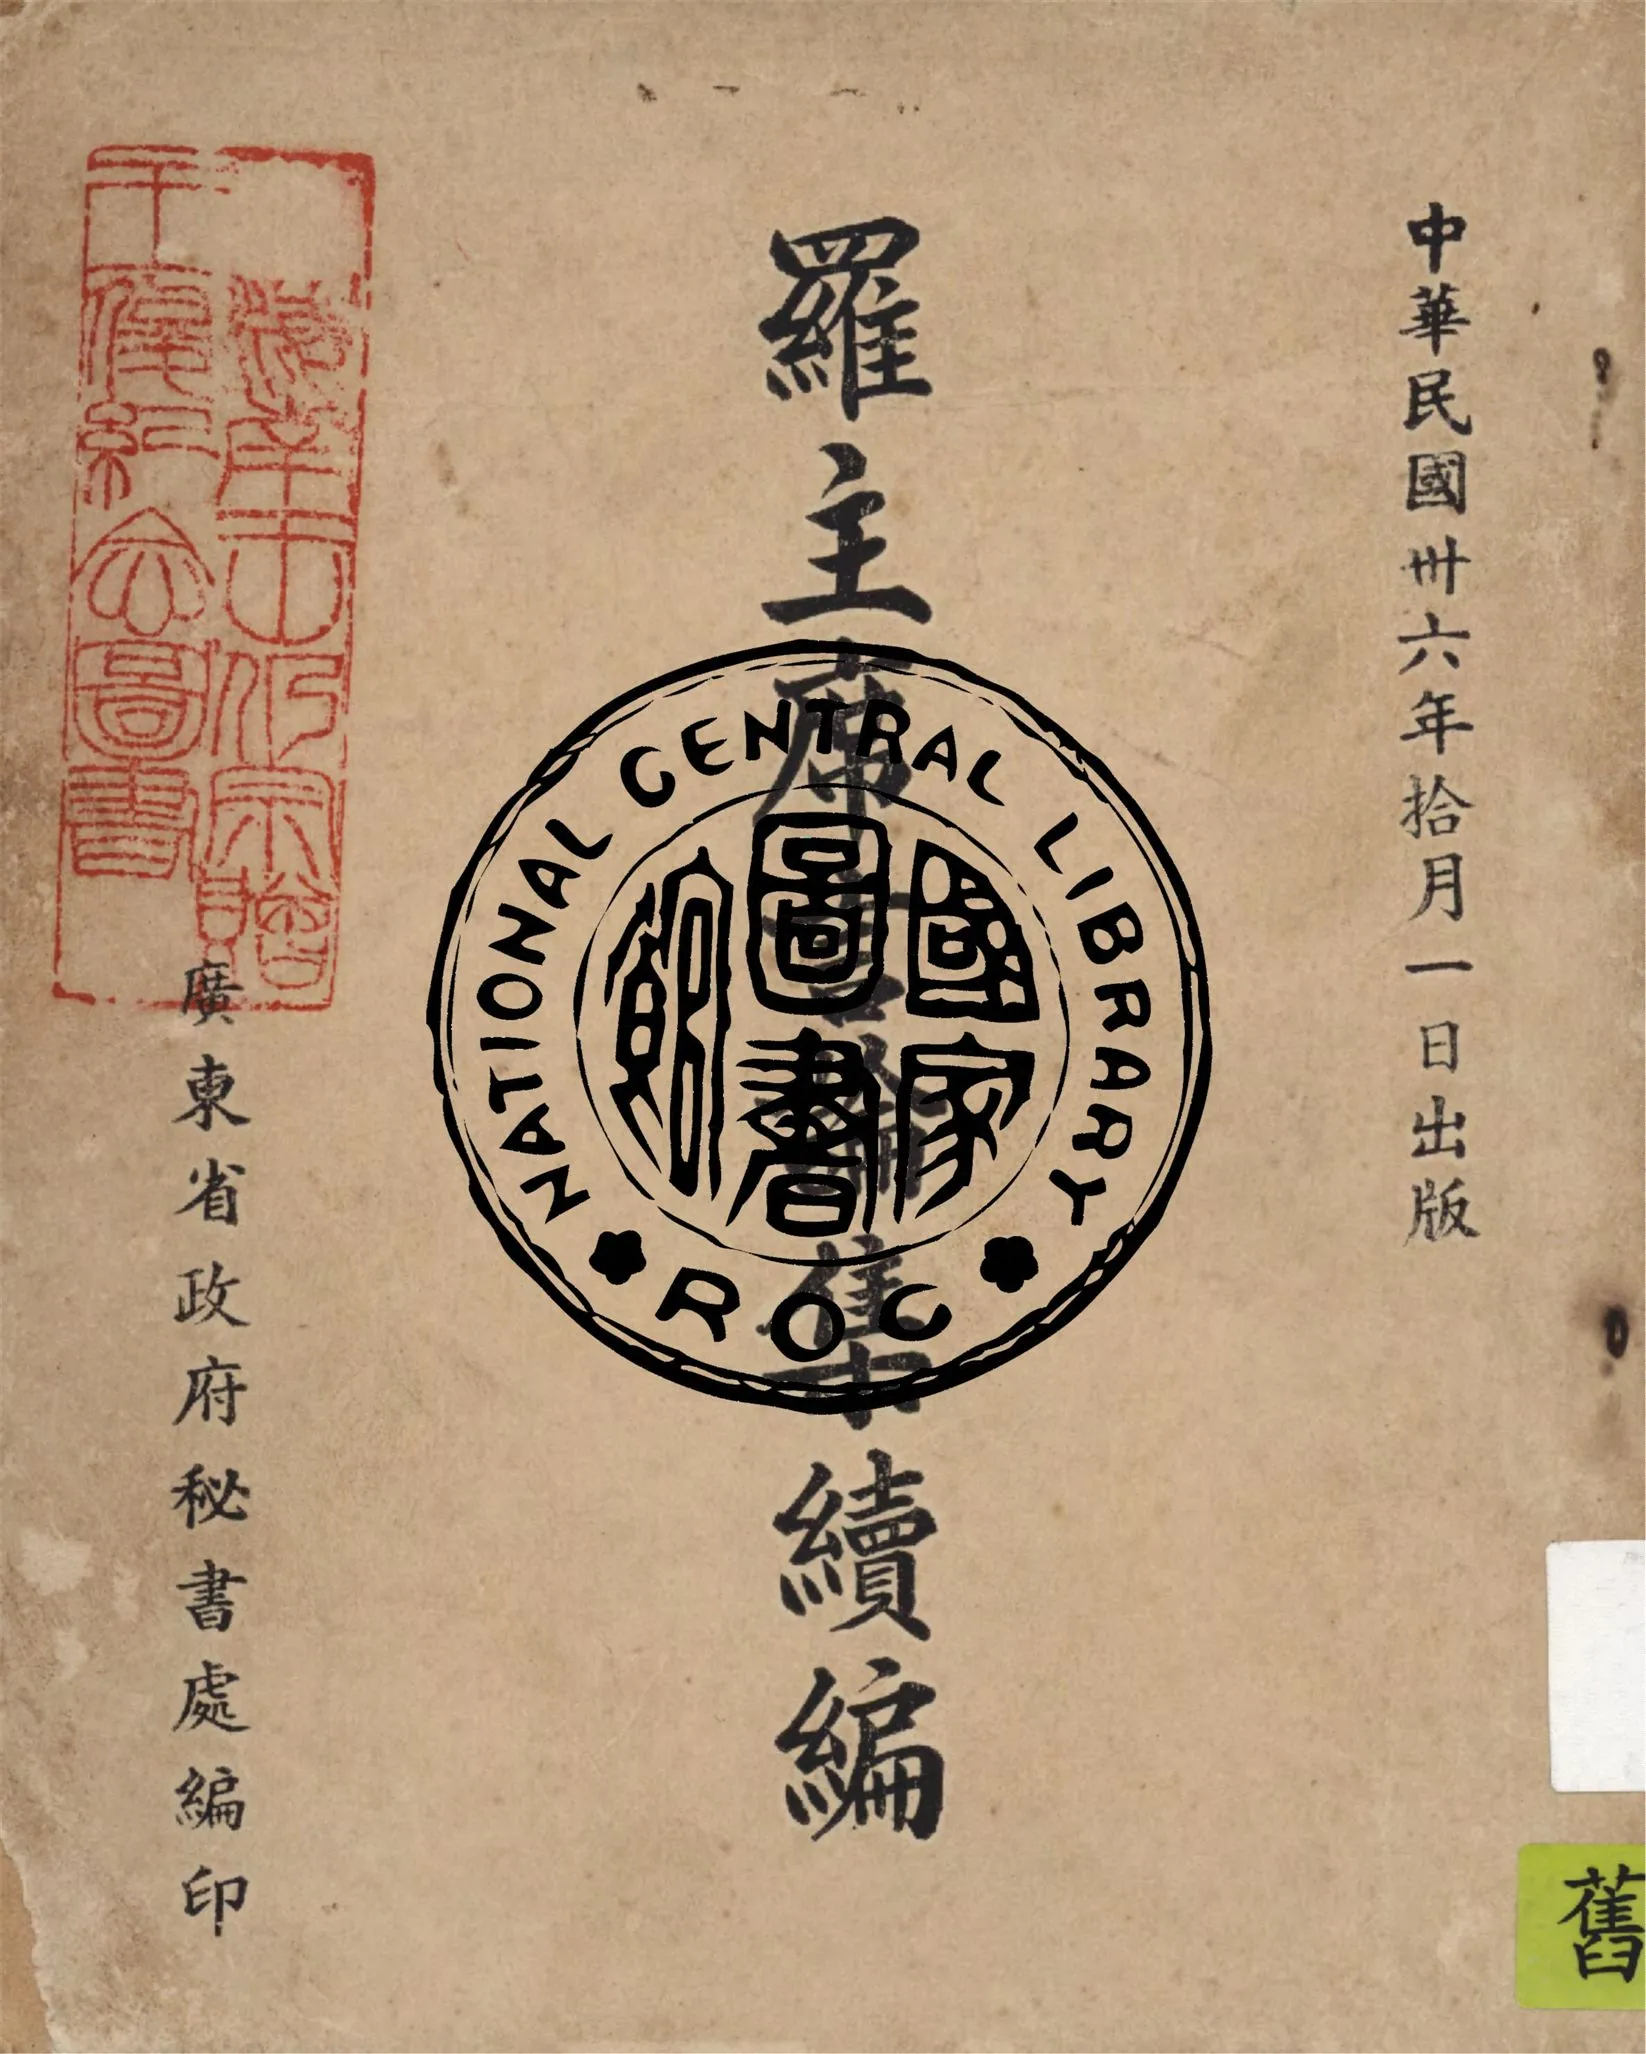 中華民國卅六年拾月一日出版
羅主席言論集續編
廣東省政府秘書處編印
NATIONAL CENTRAL LIBRARY
ROC
國家
圖書
館
舊